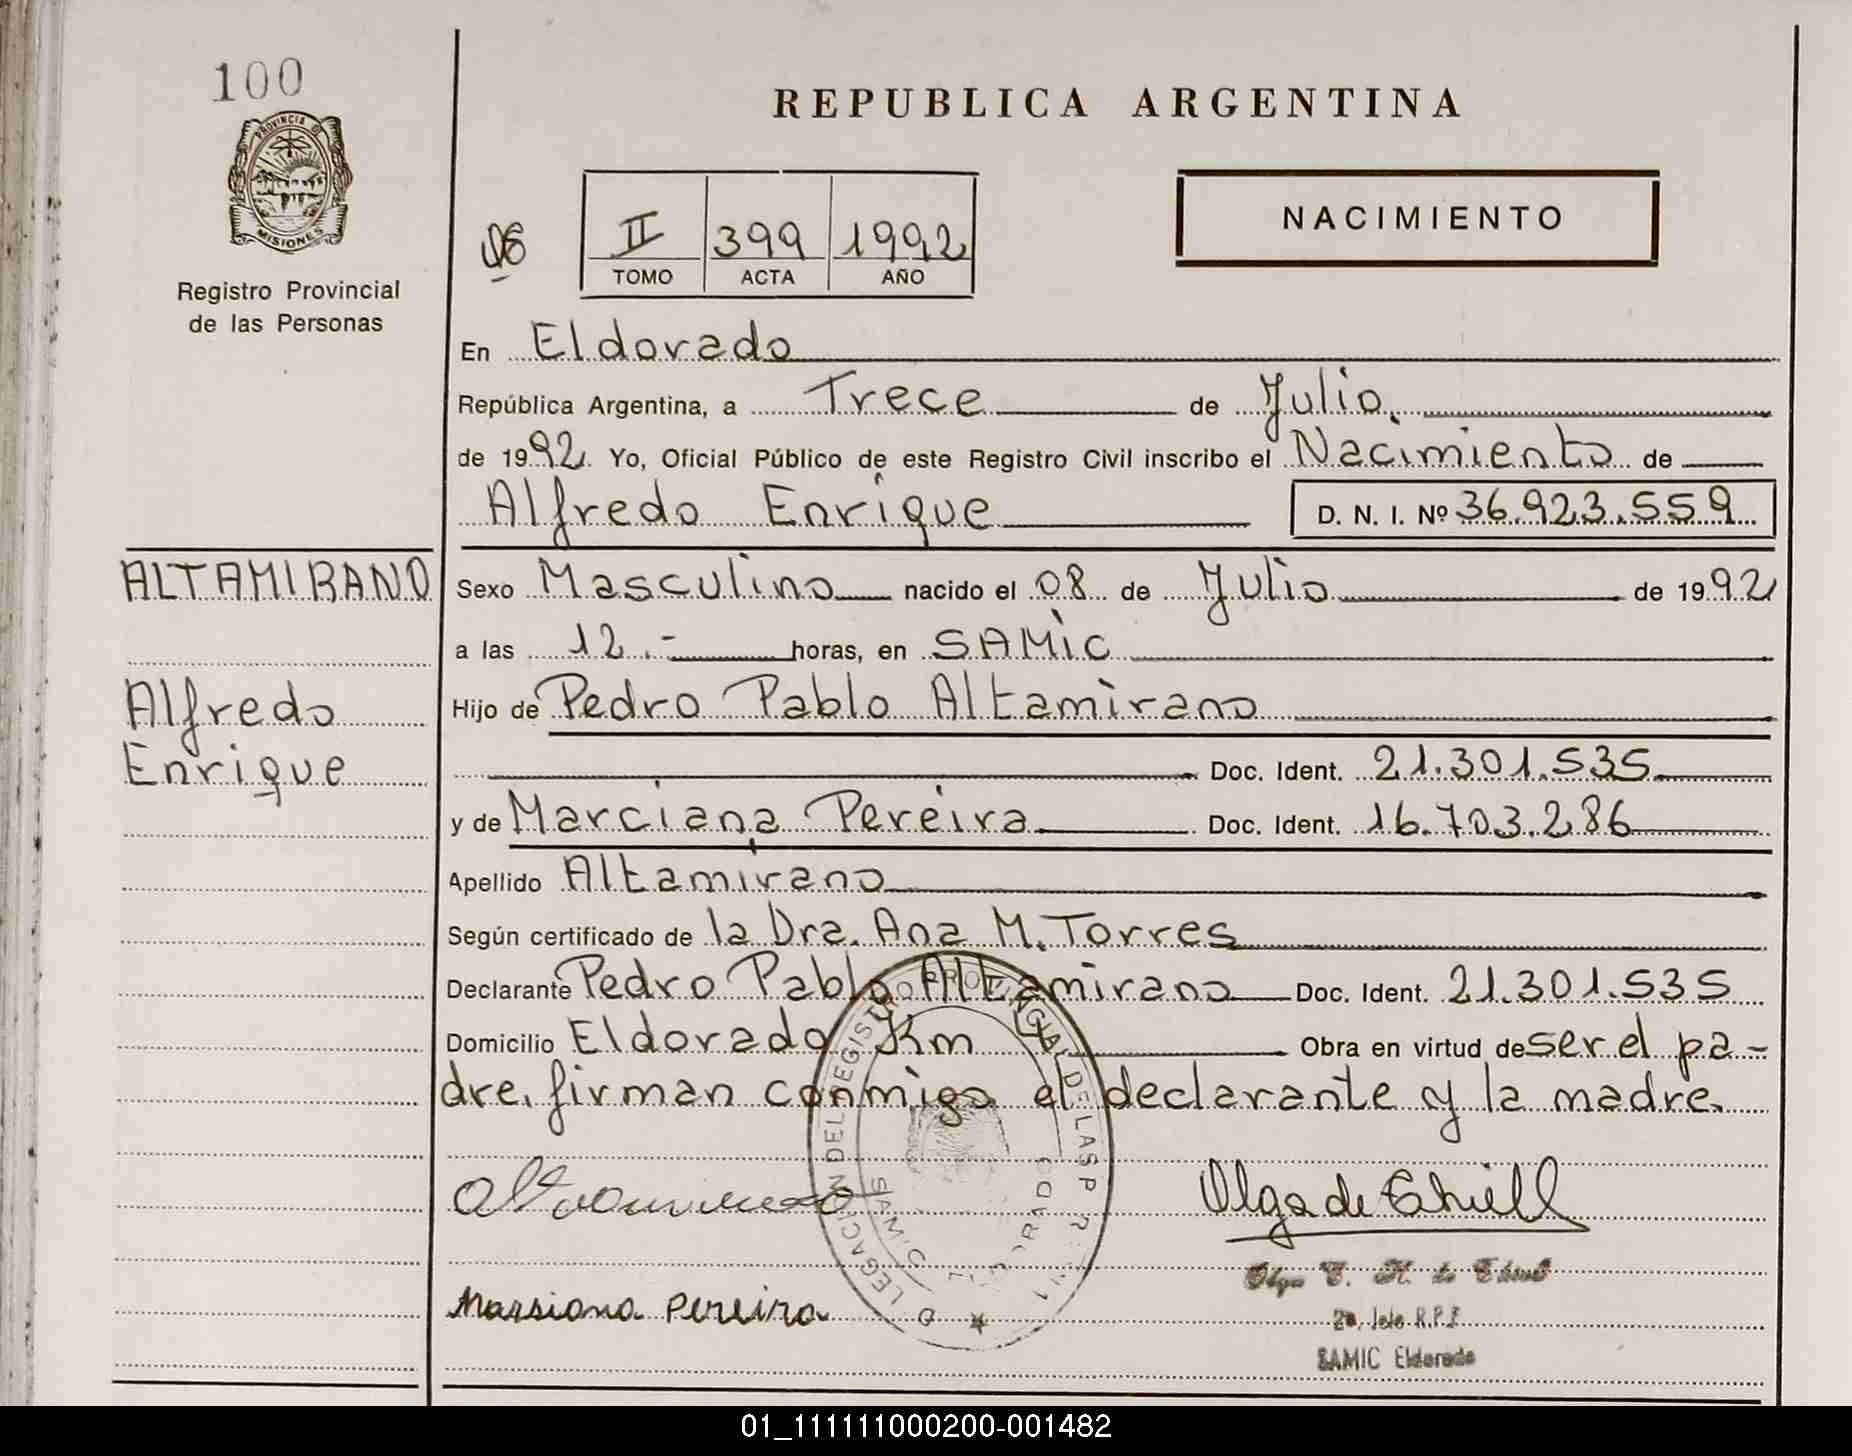 100
REPUBLICA ARGENTINA
PROVINCIA DE
MISIONES
Registro Provincial
de las Personas
II 399 1992
TOMO ACTA AÑO
NACIMIENTO
En Eldorado
República Argentina, a Trece de Julio.
de 1992. Yo, Oficial Público de este Registro Civil inscribo el Nacimiento de
Alfredo Enrique D. N. I. Nº 36.923.559
ALTAMIRANO
Alfredo
Enrique
Sexo Masculino nacido el 08 de Julio de 1992
a las 12.- horas, en SAMIC
Hijo de Pedro Pablo Altamirano
Doc. Ident. 21.301.535
y de Marciana Pereira Doc. Ident. 16.703.286
Apellido Altamirano
Según certificado de la Dra. Ana M. Torres
Declarante Pedro Pablo Altamirano Doc. Ident. 21.301.535
Domicilio Eldorado Km Obra en virtud de ser el pa-
dre, firman conmigo el declarante y la madre.
Olga de
Marsiana Pereira
SAMIC Eldorado
01_111111000200-001482